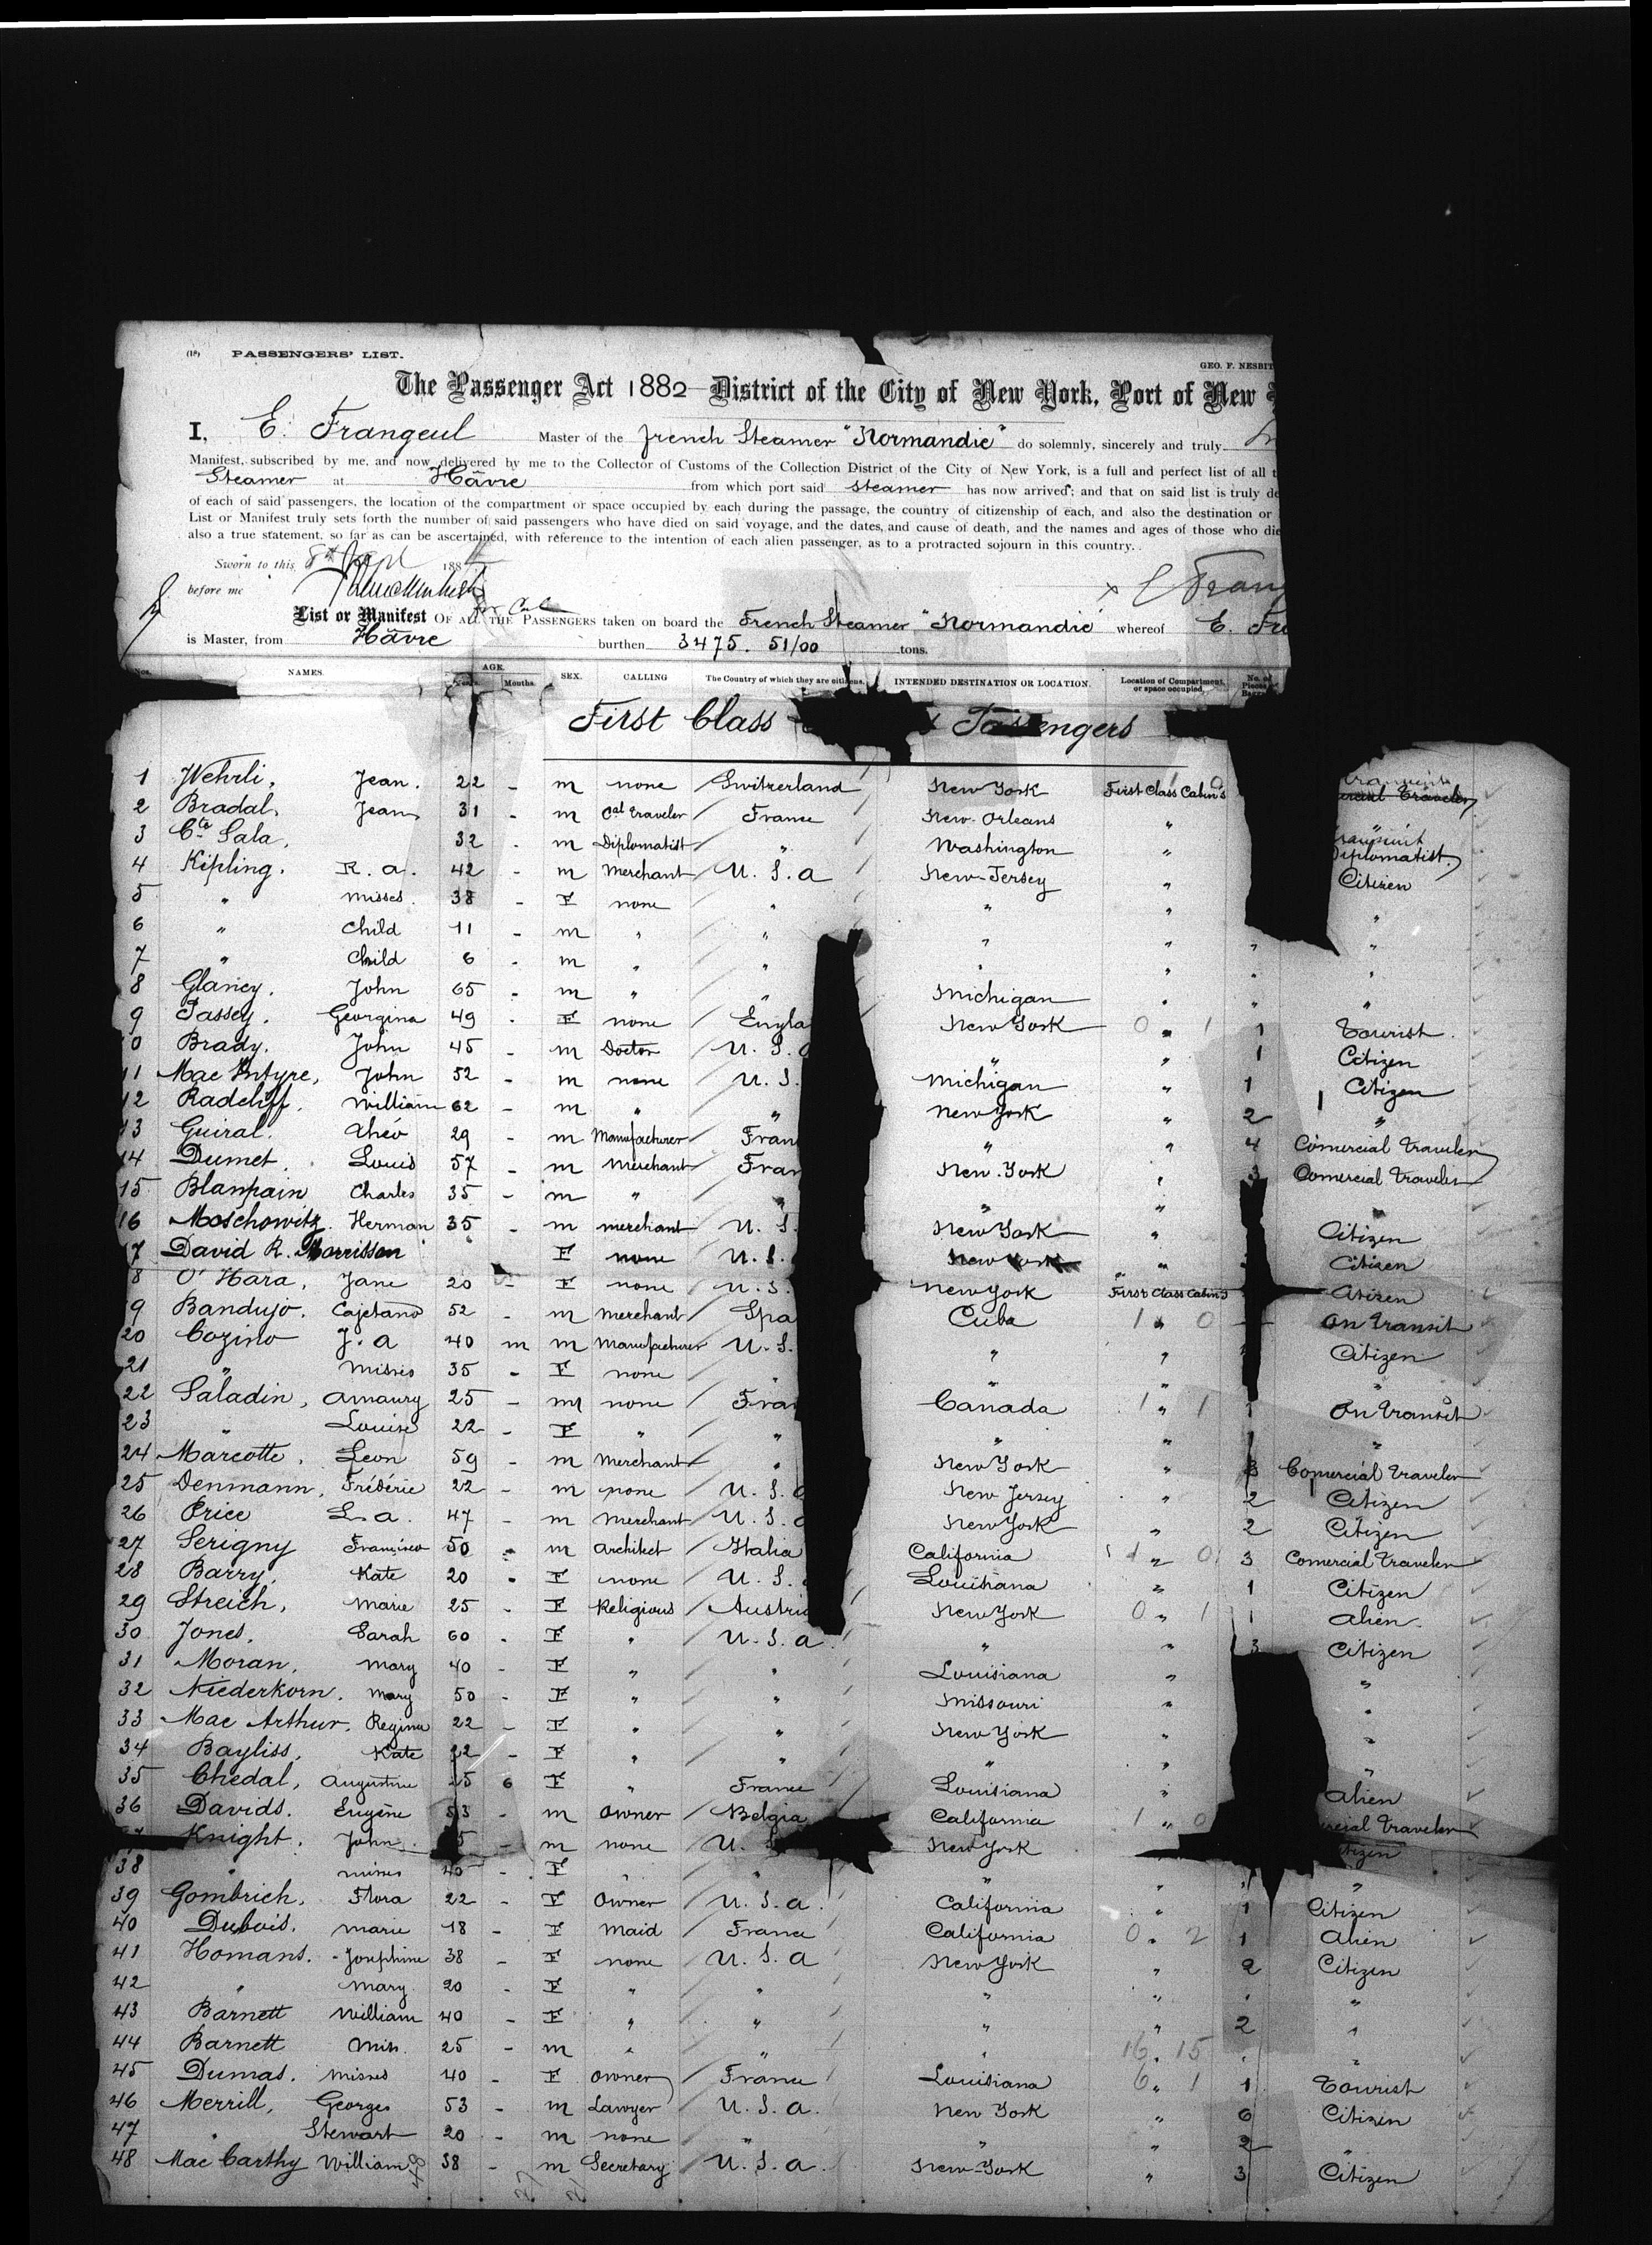 (18) PASSENGERS' LIST.
GEO. F. NESBIT
The Passenger Act 1882 District of the City of New York, Port of New
I, E. Frangeul Master of the French Steamer "Normandie" do solemnly, sincerely and truly
Manifest, subscribed by me, and now delivered by me to the Collector of Customs of the Collection District of the City of New York, is a full and perfect list of all t
Steamer at Hâvre from which port said steamer has now arrived; and that on said list is truly de
of each of said passengers, the location of the compartment or space occupied by each during the passage, the country of citizenship of each, and also the destination or
List or Manifest truly sets forth the number of said passengers who have died on said voyage, and the dates, and cause of death, and the names and ages of those who die
also a true statement, so far as can be ascertained, with reference to the intention of each alien passenger, as to a protracted sojourn in this country.
Sworn to this 8th Sept 188
before me
E Frang
List or Manifest OF ALL THE PASSENGERS taken on board the French Steamer "Normandie" whereof E. Fr
is Master, from Hâvre burthen 3475. 51/00 tons.
Nos. NAMES. AGE. Years. Months. SEX. CALLING The Country of which they are citizens. INTENDED DESTINATION OR LOCATION. Location of Compartment, or space occupied. No. of Pieces
First Class Passengers
1 Wehrli, Jean. 22 - m none Switzerland New York First Class Cabin's
2 Bradal, Jean 31 - m Cal Traveler France New-Orleans " Traveler
3 Cte Sala, 32 - m Diplomatist " Washington " Diplomatist
4 Kipling. R. a. 42 - m Merchant U. S. a New-Jersey " Citizen
5 " Misses 38 - F none " " " "
6 " Child 11 - m " " " " " "
7 " Child 6 - m " " " " " "
8 Glancy. John 65 - m " " Michigan " " "
9 Passey. Georgina 49 - F none Engla New York 0 " 1 1 Tourist.
0 Brady. John 45 - m Doctor U. S. " " 1 Citizen
11 Mac Intyre, John 52 - m none U. S. Michigan " 1 Citizen
12 Radcliff. William 62 - m " " New York " 2 "
13 Guiral. Théo 29 - m Manufacturer Fran " " 4 Comercial Traveler
14 Dumet. Louis 57 - m Merchant Fran New-York " 3 Comercial Traveler
15 Blanpain Charles 35 - m " " " " "
16 Moschowitz. Herman 35 - m merchant U. S. New York " Citizen
7 David R. Morrison F none U. S. New York " Citizen
8 O'Hara, Jane 20 - F none U. S. New York First Class Cabin's Citizen
9 Bandujo. Cajetano 52 - m Merchant Spa Cuba 1 " 0 On Transit
20 Cozino J. a 40 m m Manufacturer U. S. " " Citizen
21 " Misses 35 - F none " " " "
22 Saladin, Amaury 25 - m none Fran Canada 1 " 1 1 On Transit
23 " Louise 22 - F " " " " 1 "
24 Marcotte, Leon 59 - m Merchant " New York " 3 Comercial Traveler
25 Denmann, Frédéric 22 - m none U. S. New Jersey " 2 Citizen
26 Price L. a. 47 - m Merchant U. S. New York " 2 Citizen
27 Serigny Francisco 50 - m Architect Italia California 1 " 0 3 Comercial Traveler
28 Barry, Kate 20 - F none U. S. Louisiana " 1 Citizen
29 Streich, Marie 25 - F Religious Austri New York 0 " 1 1 Alien
30 Jones, Sarah 60 - F " U. S. a " " 3 Citizen
31 Moran, Mary 40 - F " " Louisiana " "
32 Niederkorn. Mary 50 - F " " Missouri " "
33 Mac Arthur, Regina 22 - F " " New York " "
34 Bayliss, Kate 22 - F " " " " "
35 Chedal, Augustine 25 6 F " France Louisiana " Alien
36 Davids. Eugène 53 - m Owner Belgia California 1 " 0 rcial Traveler
Knight. John 5 - m none U. S New York tizen
38 " misses 40 - F " " " " 1 "
39 Gombrich, Flora 22 - F Owner U. S. a. California " 1 Citizen
40 Dubois. Marie 18 - F Maid France California 0 " 2 1 Alien
41 Homans. - Josephine 38 - F none U. S. a New York " 2 Citizen
42 " Mary 20 - F " " " " " "
43 Barnett William 40 - F " " " " 2 "
44 Barnett Miss. 25 - m " " " 16 . 15 " "
45 Dumas. Misses 40 - F Owner France Louisiana 0 " 1 1 Tourist
46 Merrill, Georges 53 - m Lawyer U. S. a. New York " 6 Citizen
47 " Stewart 20 - m none " " " 2 "
48 Mac Carthy William 38 - m Secretary U. S. a. New-York " 3 Citizen